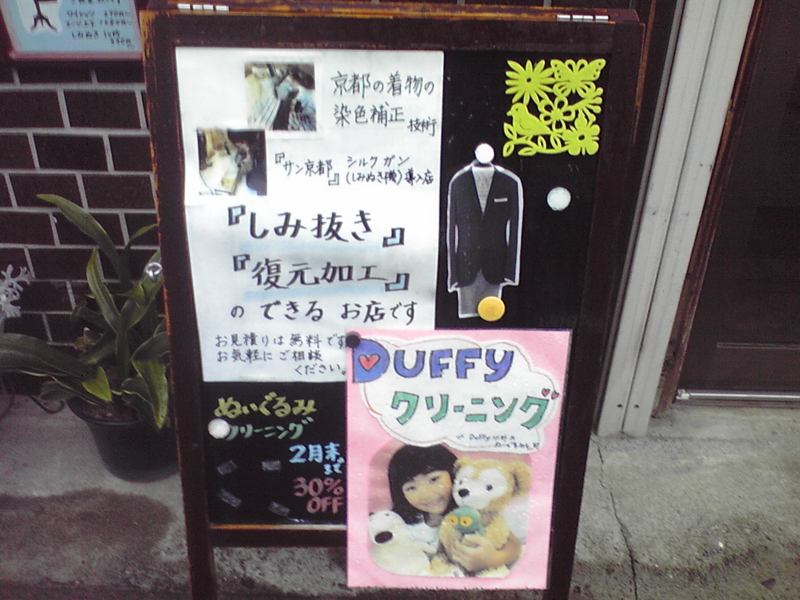 京都の着物の
染色補正技術
『サン京都』
シルクガン
(しみぬき機)導入店
『しみ抜き』
『復元加工』
のできるお店です
お見積りは無料です
お気軽にご相談
ください。
DUFFY
クリーニング
ぬいぐるみ
クリーニング
2月末まで
30%
OFF